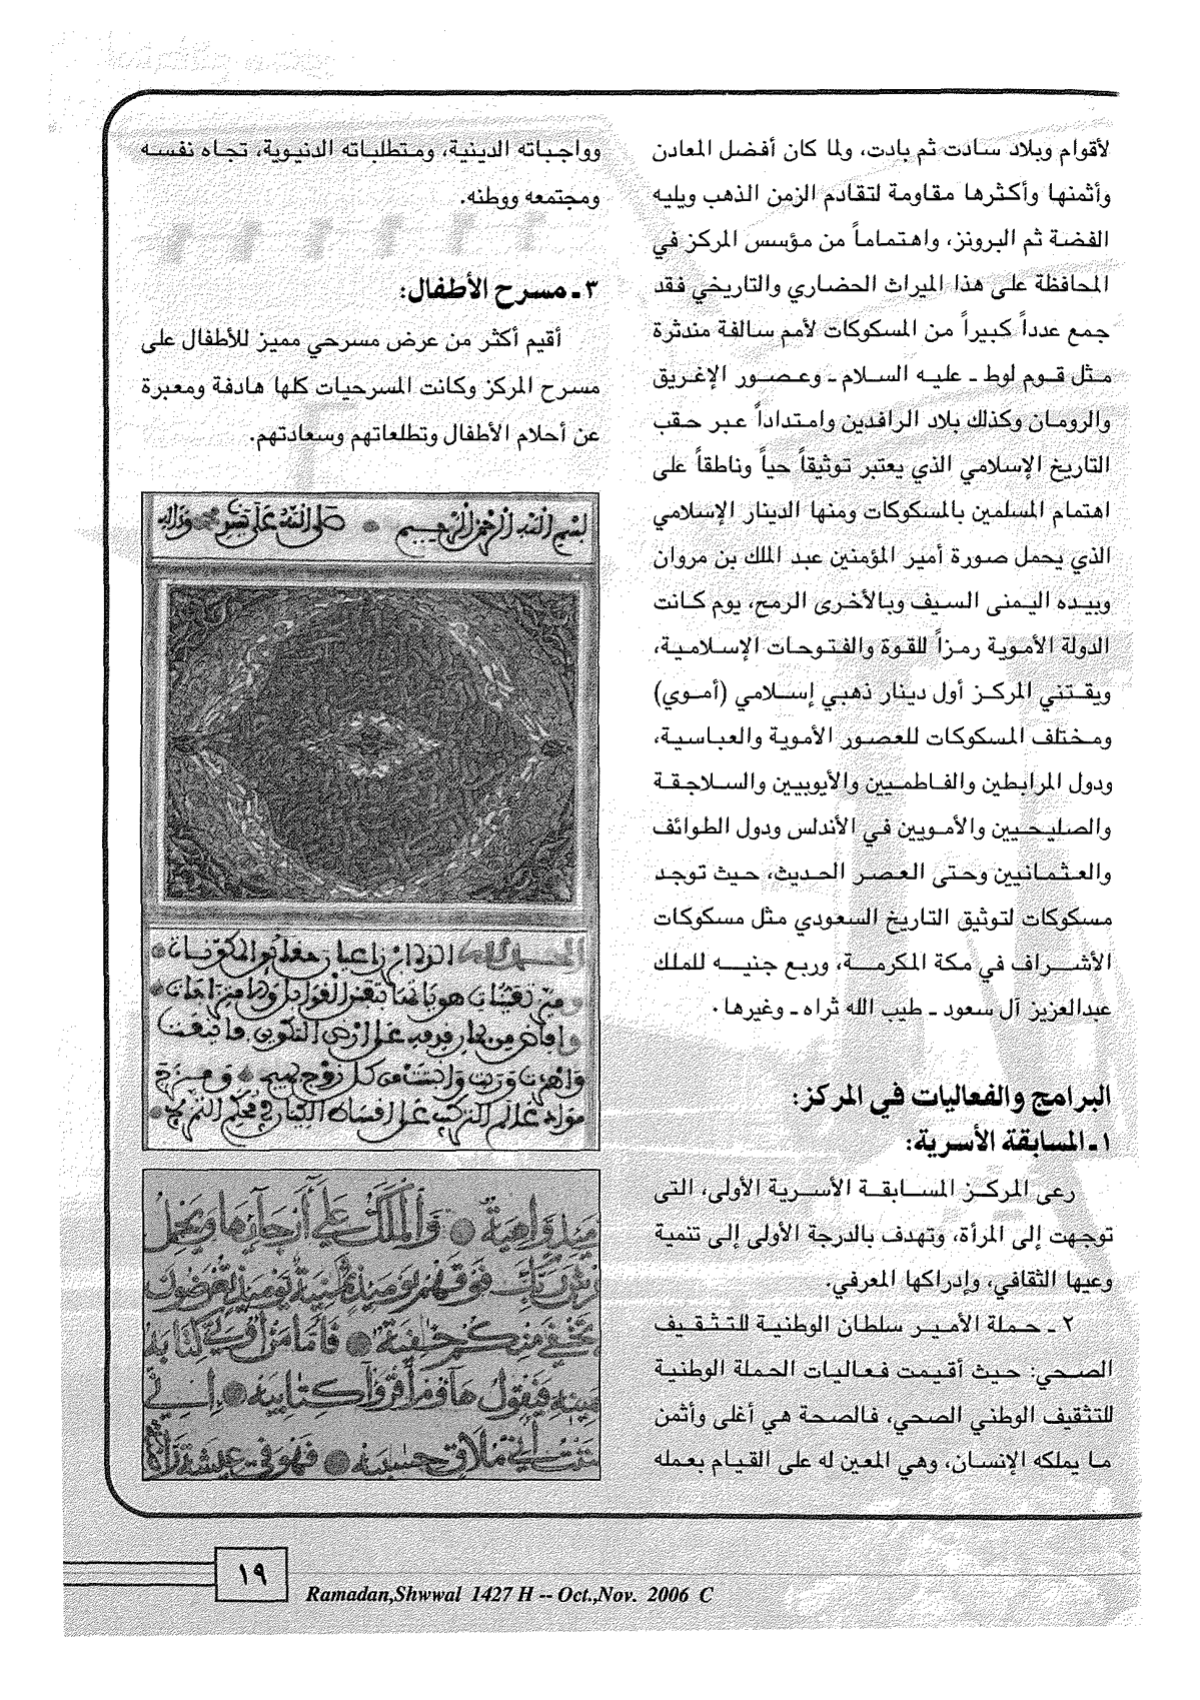 لأقوام وبلاد سادت ثم بادت، ولما كان أفضل المعادن
وأثمنها وأكثرها مقاومة لتقادم الزمن الذهب ويليه
الفضة ثم البرونز، واهتماماً من مؤسس المركز في
المحافظة على هذا الميراث الحضاري والتاريخي فقد
جمع عدداً كبيراً من المسكوكات لأمم سالفة مندثرة
مثل قوم لوط ـ عليه السلام ـ وعصور الإغريق
والرومان وكذلك بلاد الرافدين وامتداداً عبر حقب
التاريخ الإسلامي الذي يعتبر توثيقاً حياً وناطقاً على
اهتمام المسلمين بالمسكوكات ومنها الدينار الإسلامي
الذي يحمل صورة أمير المؤمنين عبد الملك بن مروان
وبيده اليمنى السيف وبالأخرى الرمح، يوم كانت
الدولة الأموية رمزاً للقوة والفتوحات الإسلامية،
ويقتني المركز أول دينار ذهبي إسلامي (أموي)
ومختلف المسكوكات للعصور الأموية والعباسية،
ودول المرابطين والفاطميين والأيوبيين والسلاجقة
والصليحيين والأمويين في الأندلس ودول الطوائف
والعثمانيين وحتى العصر الحديث، حيث توجد
مسكوكات لتوثيق التاريخ السعودي مثل مسكوكات
الأشراف في مكة المكرمة، وربع جنيه للملك
عبدالعزيز آل سعود ـ طيب الله ثراه ـ وغيرها.
البرامج والفعاليات في المركز:
١ـ المسابقة الأسرية:
رعى المركز المسابقة الأسرية الأولى، التى
توجهت إلى المرأة، وتهدف بالدرجة الأولى إلى تنمية
وعيها الثقافي، وإدراكها المعرفي.
٢ ـ حملة الأمير سلطان الوطنية للتثقيف
الصحي: حيث أقيمت فعاليات الحملة الوطنية
للتثقيف الوطني الصحي، فالصحة هي أغلى وأثمن
ما يملكه الإنسان، وهي المعين له على القيام بعمله
وواجباته الدينية، ومتطلباته الدنيوية، تجاه نفسه
ومجتمعه ووطنه.
٣ ـ مسرح الأطفال:
أقيم أكثر من عرض مسرحي مميز للأطفال على
مسرح المركز وكانت المسرحيات كلها هادفة ومعبرة
عن أحلام الأطفال وتطلعاتهم وسعادتهم.
بسم الله الرحمن الرحيم صلى الله على
واهية والملك على أرجائها ويحمل
ربك فوقهم يومئذ ثمنية يومئذ تعرضون
تخفى منكم خافية فأما من أوتي كتابه
يمينه فيقول هاؤم اقرؤا كتابيه إني
ظننت أني ملاق حسابيه فهو في عيشة
١٩
Ramadan,Shwwal 1427 H -- Oct.,Nov. 2006 C